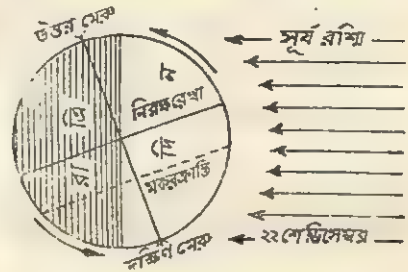 উত্তর মেরু
সূর্য রশ্মি
দি
ন
নিরক্ষরেখা
রা
ত্রি
মকরক্রান্তি
দক্ষিণ মেরু
২২শে ডিসেম্বর